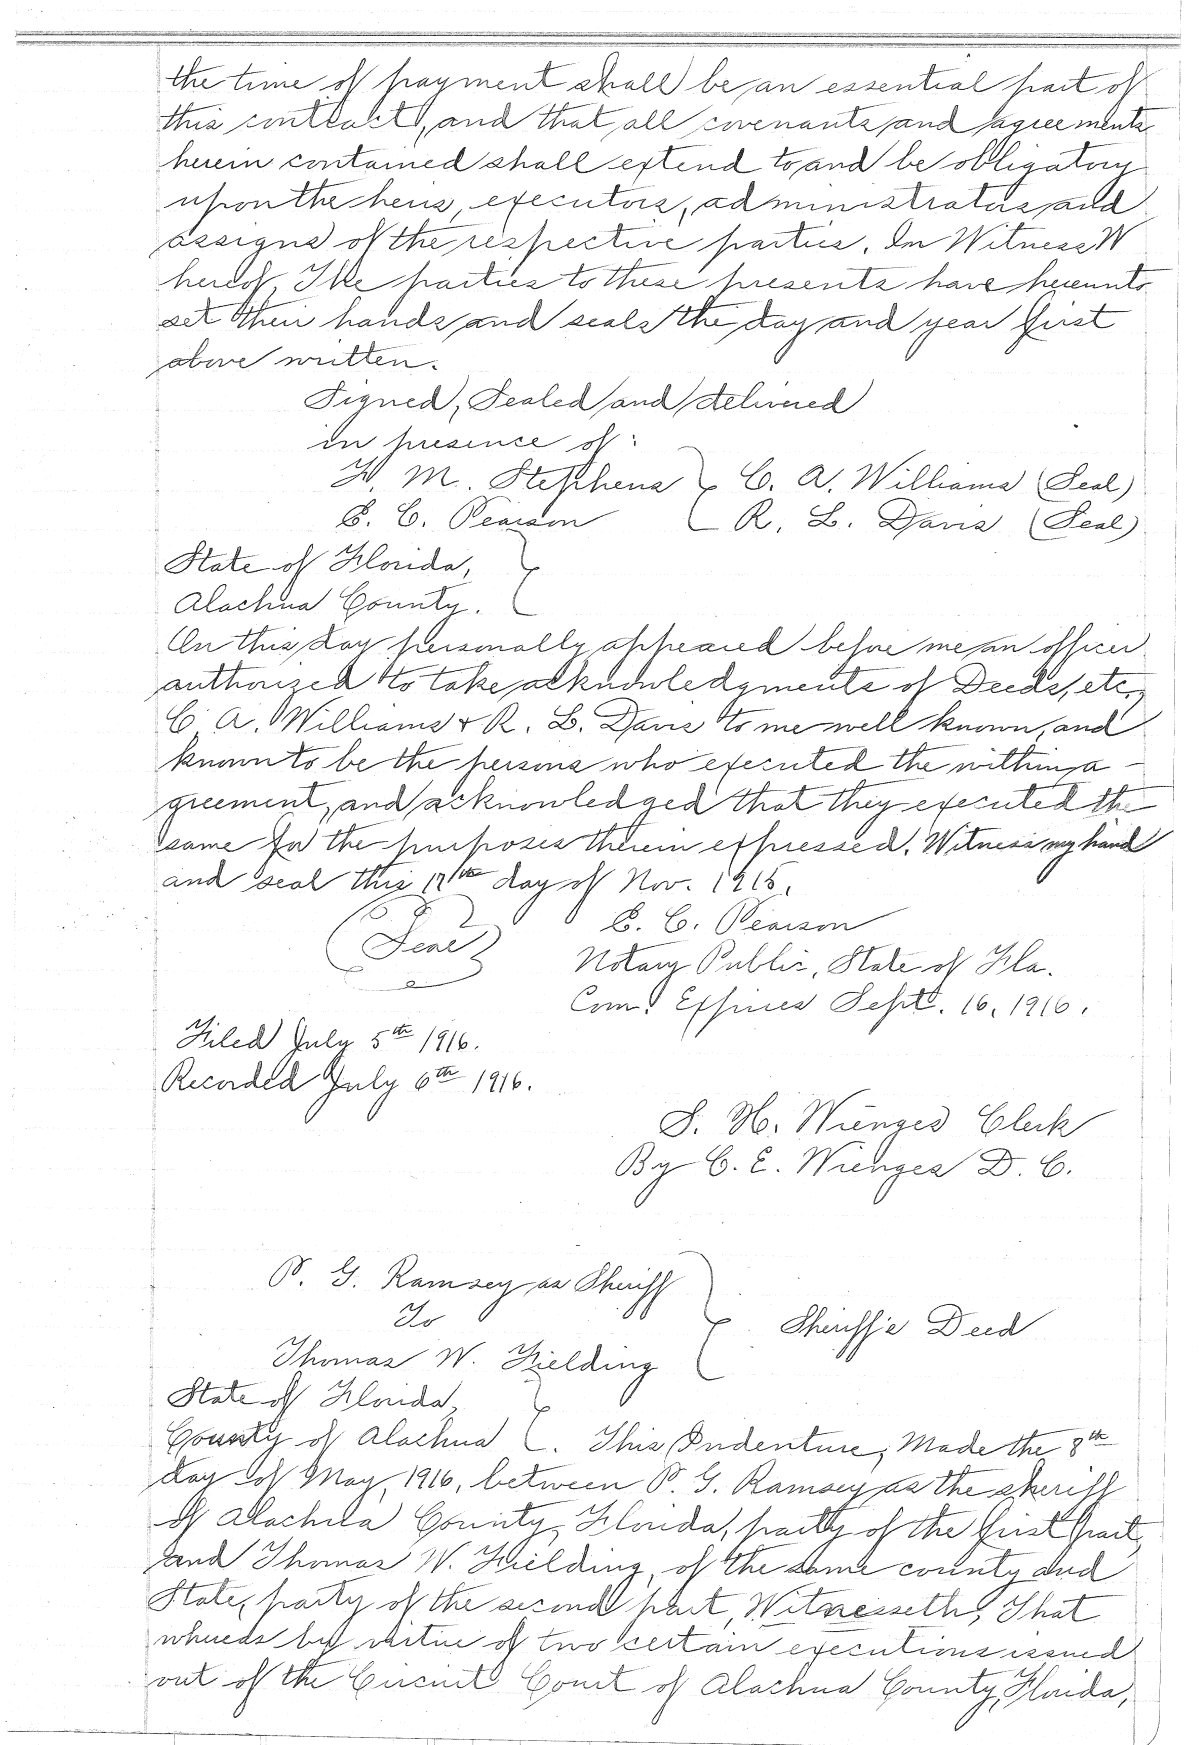 the time of payment shall be an essential part of
this contract, and that all covenants and agreements
herein contained shall extend to and be obligatory
upon the heirs, executors, administrators and
assigns of the respective parties. In Witness W
hereof, The parties to these presents have hereunto
set their hands and seals the day and year first
above written.
Signed, Sealed and delivered
in presence of:
H. M. Stephens C. A. Williams (Seal)
E. C. Pearson R. L. Davis (Seal)
State of Florida,
Alachua County.
On this day personally appeared before me an officer
authorized to take acknowledgments of Deeds, etc.,
C. A. Williams & R. L. Davis to me well known, and
known to be the persons who executed the within a-
greement, and acknowledged that they executed the
same for the purposes therein expressed. Witness my hand
and seal this 17th day of Nov. 1915.
(Seal) E. C. Pearson
Notary Public, State of Fla.
Com. Expires Sept. 16, 1916.
Filed July 5th 1916.
Recorded July 6th 1916.
S. H. Wienges Clerk
By C. E. Wienges D. C.
P. G. Ramsey as Sheriff
To
Sheriff's Deed
Thomas W. Fielding
State of Florida,
County of Alachua. This Indenture, Made the 8th
day of May, 1916, between P. G. Ramsey as the sheriff
of Alachua County, Florida, party of the first part,
and Thomas W. Fielding, of the same county and
State, party of the second part, Witnesseth, That
whereas by virtue of two certain executions issued
out of the Circuit Court of Alachua County, Florida,